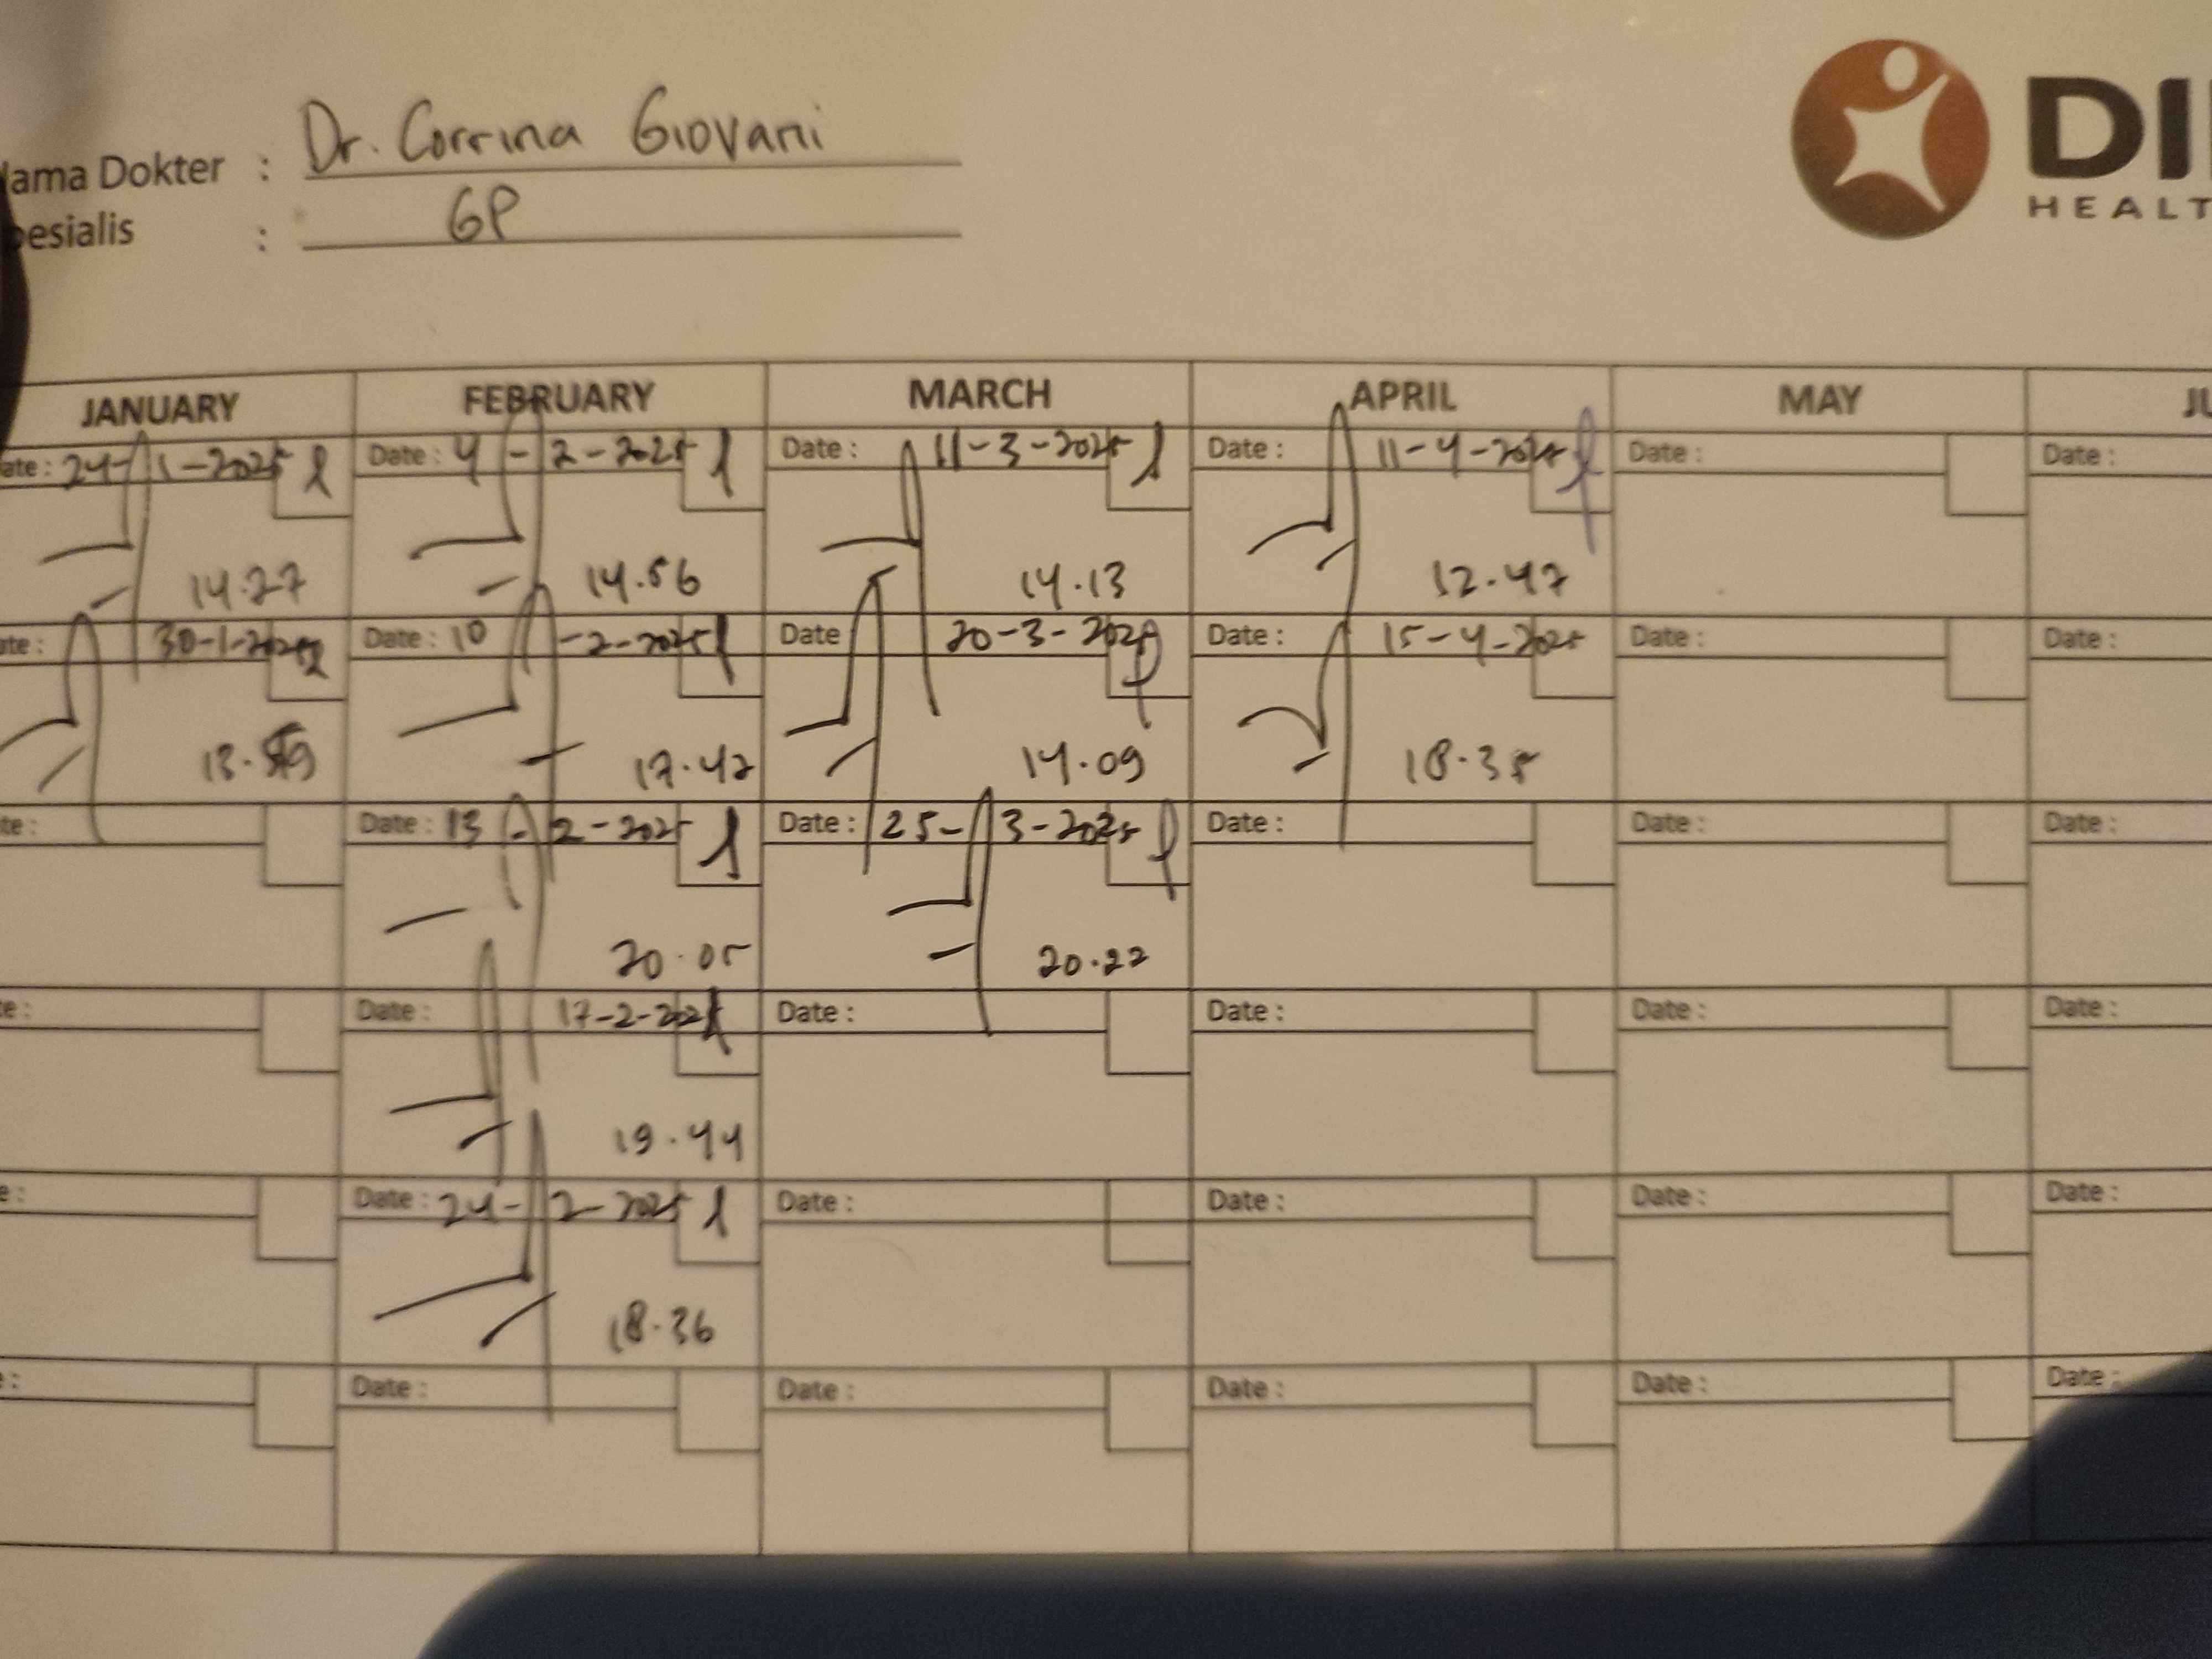 Nama Dokter : Dr. Corrina Giovani
Spesialis : GP
DI
HEALT
JANUARY FEBRUARY MARCH APRIL MAY JU
Date : 24-1-2025 Date : 4-2-2025 Date : 11-3-2025 Date : 11-4-2025 Date : Date :
14.27 14.56 14.13 12.47
Date : 30-1-2025 Date : 10-2-2025 Date 20-3-2025 Date : 15-4-2025 Date : Date :
17.42 14.09 18.35
Date : Date : 13-2-2025 Date : 25-3-2025 Date : Date : Date :
20.05 20.22
Date : Date : 17-2-2025 Date : Date : Date : Date :
19.44
Date : Date : 24-2-2025 Date : Date : Date : Date :
18.36
Date : Date : Date : Date : Date : Date :